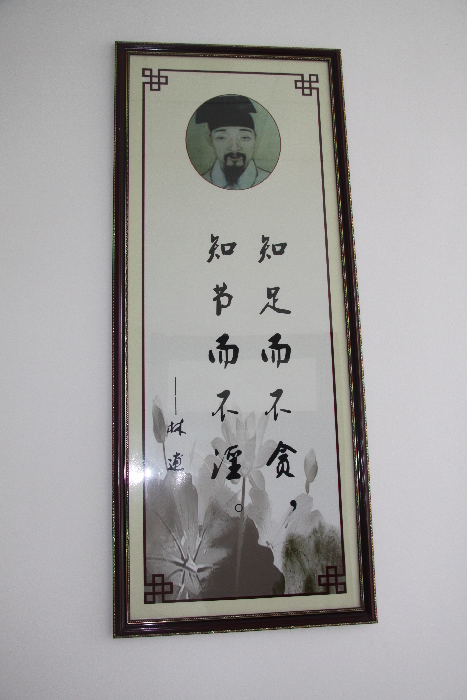 知足而不贪，
知节而不淫。
——林逋